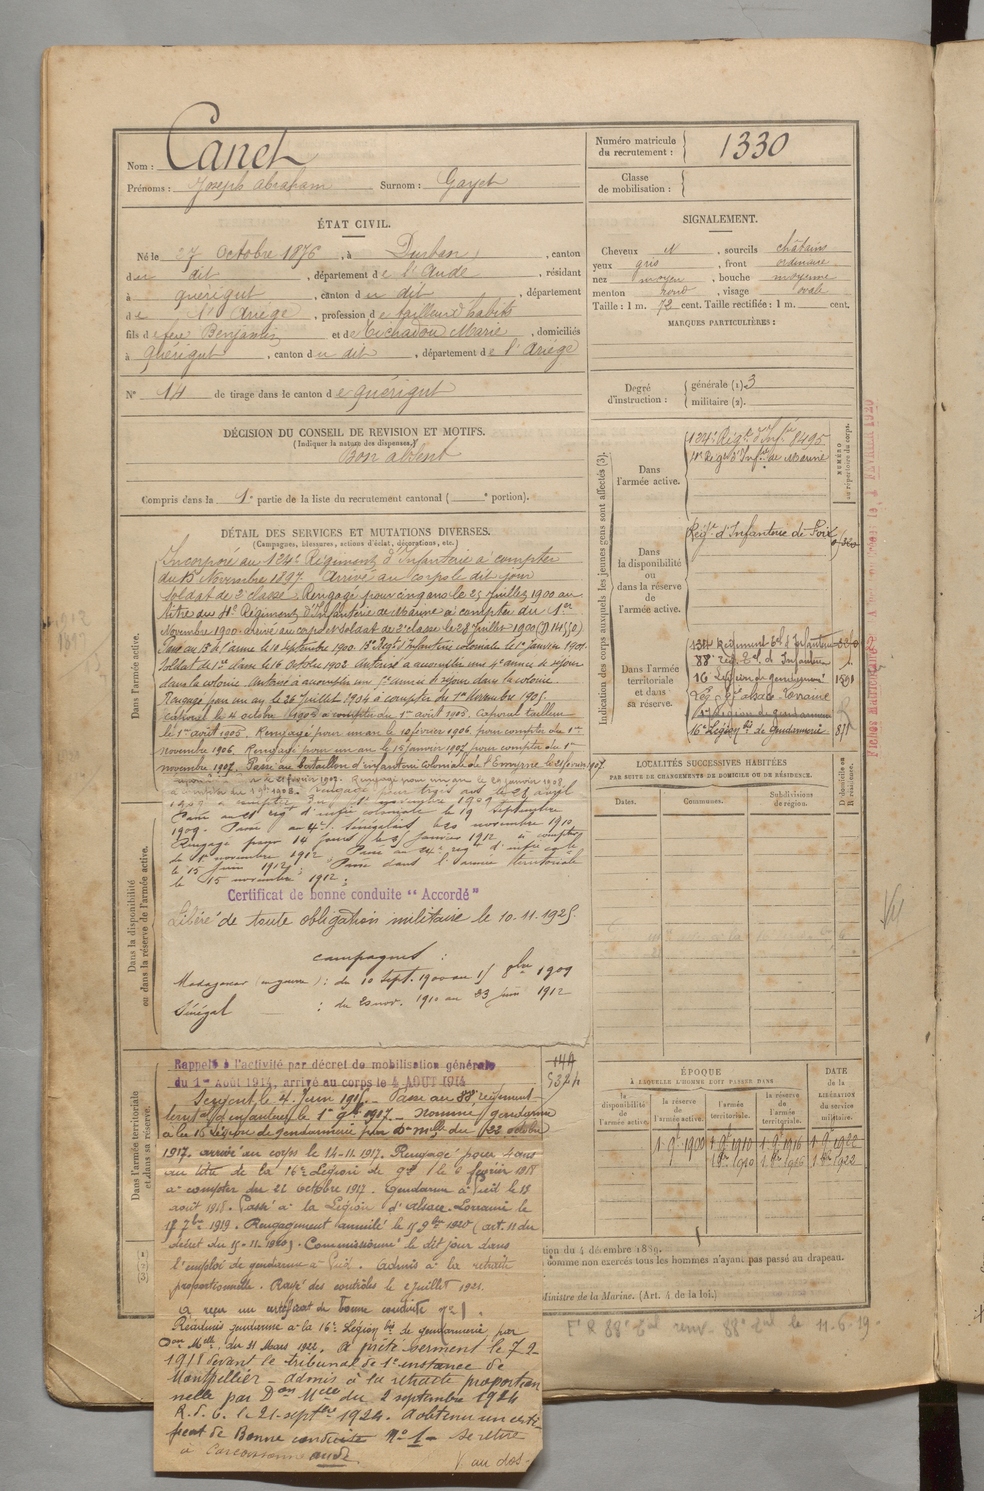 Nom : Canet
Prénoms : Joseph Abraham Surnom : Gayet
Numéro matricule du recrutement : 1330
Classe de mobilisation :
ÉTAT CIVIL.
Né le 27 Octobre 1876, à Durban, canton
du dit, département de l'Aude, résidant
à Quérigut, canton du dit, département
de l'Ariège, profession de tailleur d'habits
fils de feu Benjamin et de Tichadou Marie, domiciliés
à Quérigut, canton du dit, département de l'Ariège
N° 14 de tirage dans le canton de Quérigut
SIGNALEMENT.
Cheveux N, sourcils châtains
yeux gris, front ordinaire
nez moyen, bouche moyenne
menton rond, visage ovale
Taille : 1 m. 72 cent. Taille rectifiée : 1 m. cent.
MARQUES PARTICULIÈRES :
Degré d'instruction : générale (1). 3
militaire (2).
DÉCISION DU CONSEIL DE REVISION ET MOTIFS.
(Indiquer la nature des dispenses.)
Bon absent
Compris dans la 1e partie de la liste du recrutement cantonal ( e portion).
DÉTAIL DES SERVICES ET MUTATIONS DIVERSES.
(Campagnes, blessures, actions d'éclat, décorations, etc.)
Dans l'armée active.
Incorporé au 124e Régiment d'Infanterie à compter
du 15 Novembre 1897. Arrivé au corps le dit jour
Soldat de 2e classe. Rengagé pour cinq ans le 25 Juillet 1900 au
titre du 11e Régiment d'Infanterie de Marine à compter du 1er
Novembre 1900. arrivé au corps et Soldat de 2e classe le 28 Juillet 1900
Passé au 13e de l'arme le 10 septembre 1900. 13e Régt d'Infanterie coloniale le 1er Janvier 1901.
Soldat de 1re classe le 16 Octobre 1902. Autorisé à accomplir une 4e année de séjour
dans la colonie. Autorisé à accomplir une année de séjour dans la colonie.
Rengagé pour un an le 26 Juillet 1904 à compter du 1er Novembre 1905.
le 1er août 1905. Rengagé pour un an le 10 février 1906, pour compter du 1er
novembre 1906. Rengagé pour un an le 15 janvier 1907 pour compter du 1er
novembre 1907. Passé au bataillon d'infanterie coloniale de l'Emyrne le 21 février 1907.
Passé au 21e régt d'infrie coloniale le 19 septembre
1909. Passé au 4e Sénégalais le 20 novembre 1910
le 15 juin 1912. Passé dans l'armée territoriale
le 15 novembre 1912.
Dans la disponibilité ou dans la réserve de l'armée active.
Certificat de bonne conduite "Accordé"
Libéré de toute obligation militaire le 10.11.1925.
campagnes :
Madagascar (en guerre) : du 10 Sept. 1900 au 15 8bre 1909
Sénégal : du 20 nov. 1910 au 23 juin 1912
Dans l'armée territoriale et dans sa réserve.
Rappelé à l'activité par décret de mobilisation générale
du 1er Août 1914, arrivé au corps le 4 AOUT 1914
Sergent le 4 Juin 1915. Passé au 88e régiment
territal d'infanterie le 1er 9bre 1917. Nommé gendarme
à la 16e Légion de gendarmerie par Don mlle du 22 octobre
1917. arrivé au corps le 14-11-1917. Rengagé pour 4 ans
au titre de la 16e Légion de gie le 6 février 1918
à compter du 22 octobre 1917. Gendarme à pied le 13
août 1918. Passé à la Légion d'Alsace-Lorraine le
7bre 1919. Rengagement annulé le 15 9bre 1920 (art. 11 du
décret du 15-11-1920). Commissionné le dit jour dans
l'emploi de gendarme à pied. Admis à la retraite
proportionnelle. Rayé des contrôles le 2 juillet 1921.
a reçu un certificat de bonne conduite
Réadmis gendarme à la 16e Légion bis de gendarmerie par
Don Mlle du 31 Mars 1922. A prêté serment le 7-2-
1918 devant le tribunal de 1e instance de
Montpellier - admis à la retraite proportion
nelle par Don Mlle du 2 septembre 1924
R.d.C. le 21 septbre 1924. A obtenu un certi
ficat de Bonne conduite No 1 - se retire
à Carcassonne aude.
au dos.
Indication des corps auxquels les jeunes gens sont affectés (3).
Dans l'armée active.
124e Régt d'Inftie 1495
11e Régt d'Inftie de Marine
NUMÉRO au répertoire du corps.
Dans la disponibilité ou dans la réserve de l'armée active.
Régt d'Infanterie de Foix
Dans l'armée territoriale et dans sa réserve.
134e Régiment Tal d'Infanterie
88e rég. Tal d'Infanterie
16 Légion de gendarmerie
Lég. d'Alsace-Lorraine
16e Légion bis de Gendarmerie
LOCALITÉS SUCCESSIVES HABITÉES
PAR SUITE DE CHANGEMENTS DE DOMICILE OU DE RÉSIDENCE.
Dates. Communes. Subdivisions de région. D domicile ou R résidence.
144
5324
ÉPOQUE
À LAQUELLE L'HOMME DOIT PASSER DANS
la disponibilité de l'armée active. la réserve de l'armée active. l'armée territoriale. la réserve de l'armée territoriale.
DATE de la LIBÉRATION du service militaire.
1 9e 1900 1 9e 1910 1 9e 1916 1 9e 1922
tion du 4 décembre 1889.
homme non exercés tous les hommes n'ayant pas passé au drapeau.
Ministre de la Marine. (Art. 4 de la loi.)
88e Tal le 11-6-19